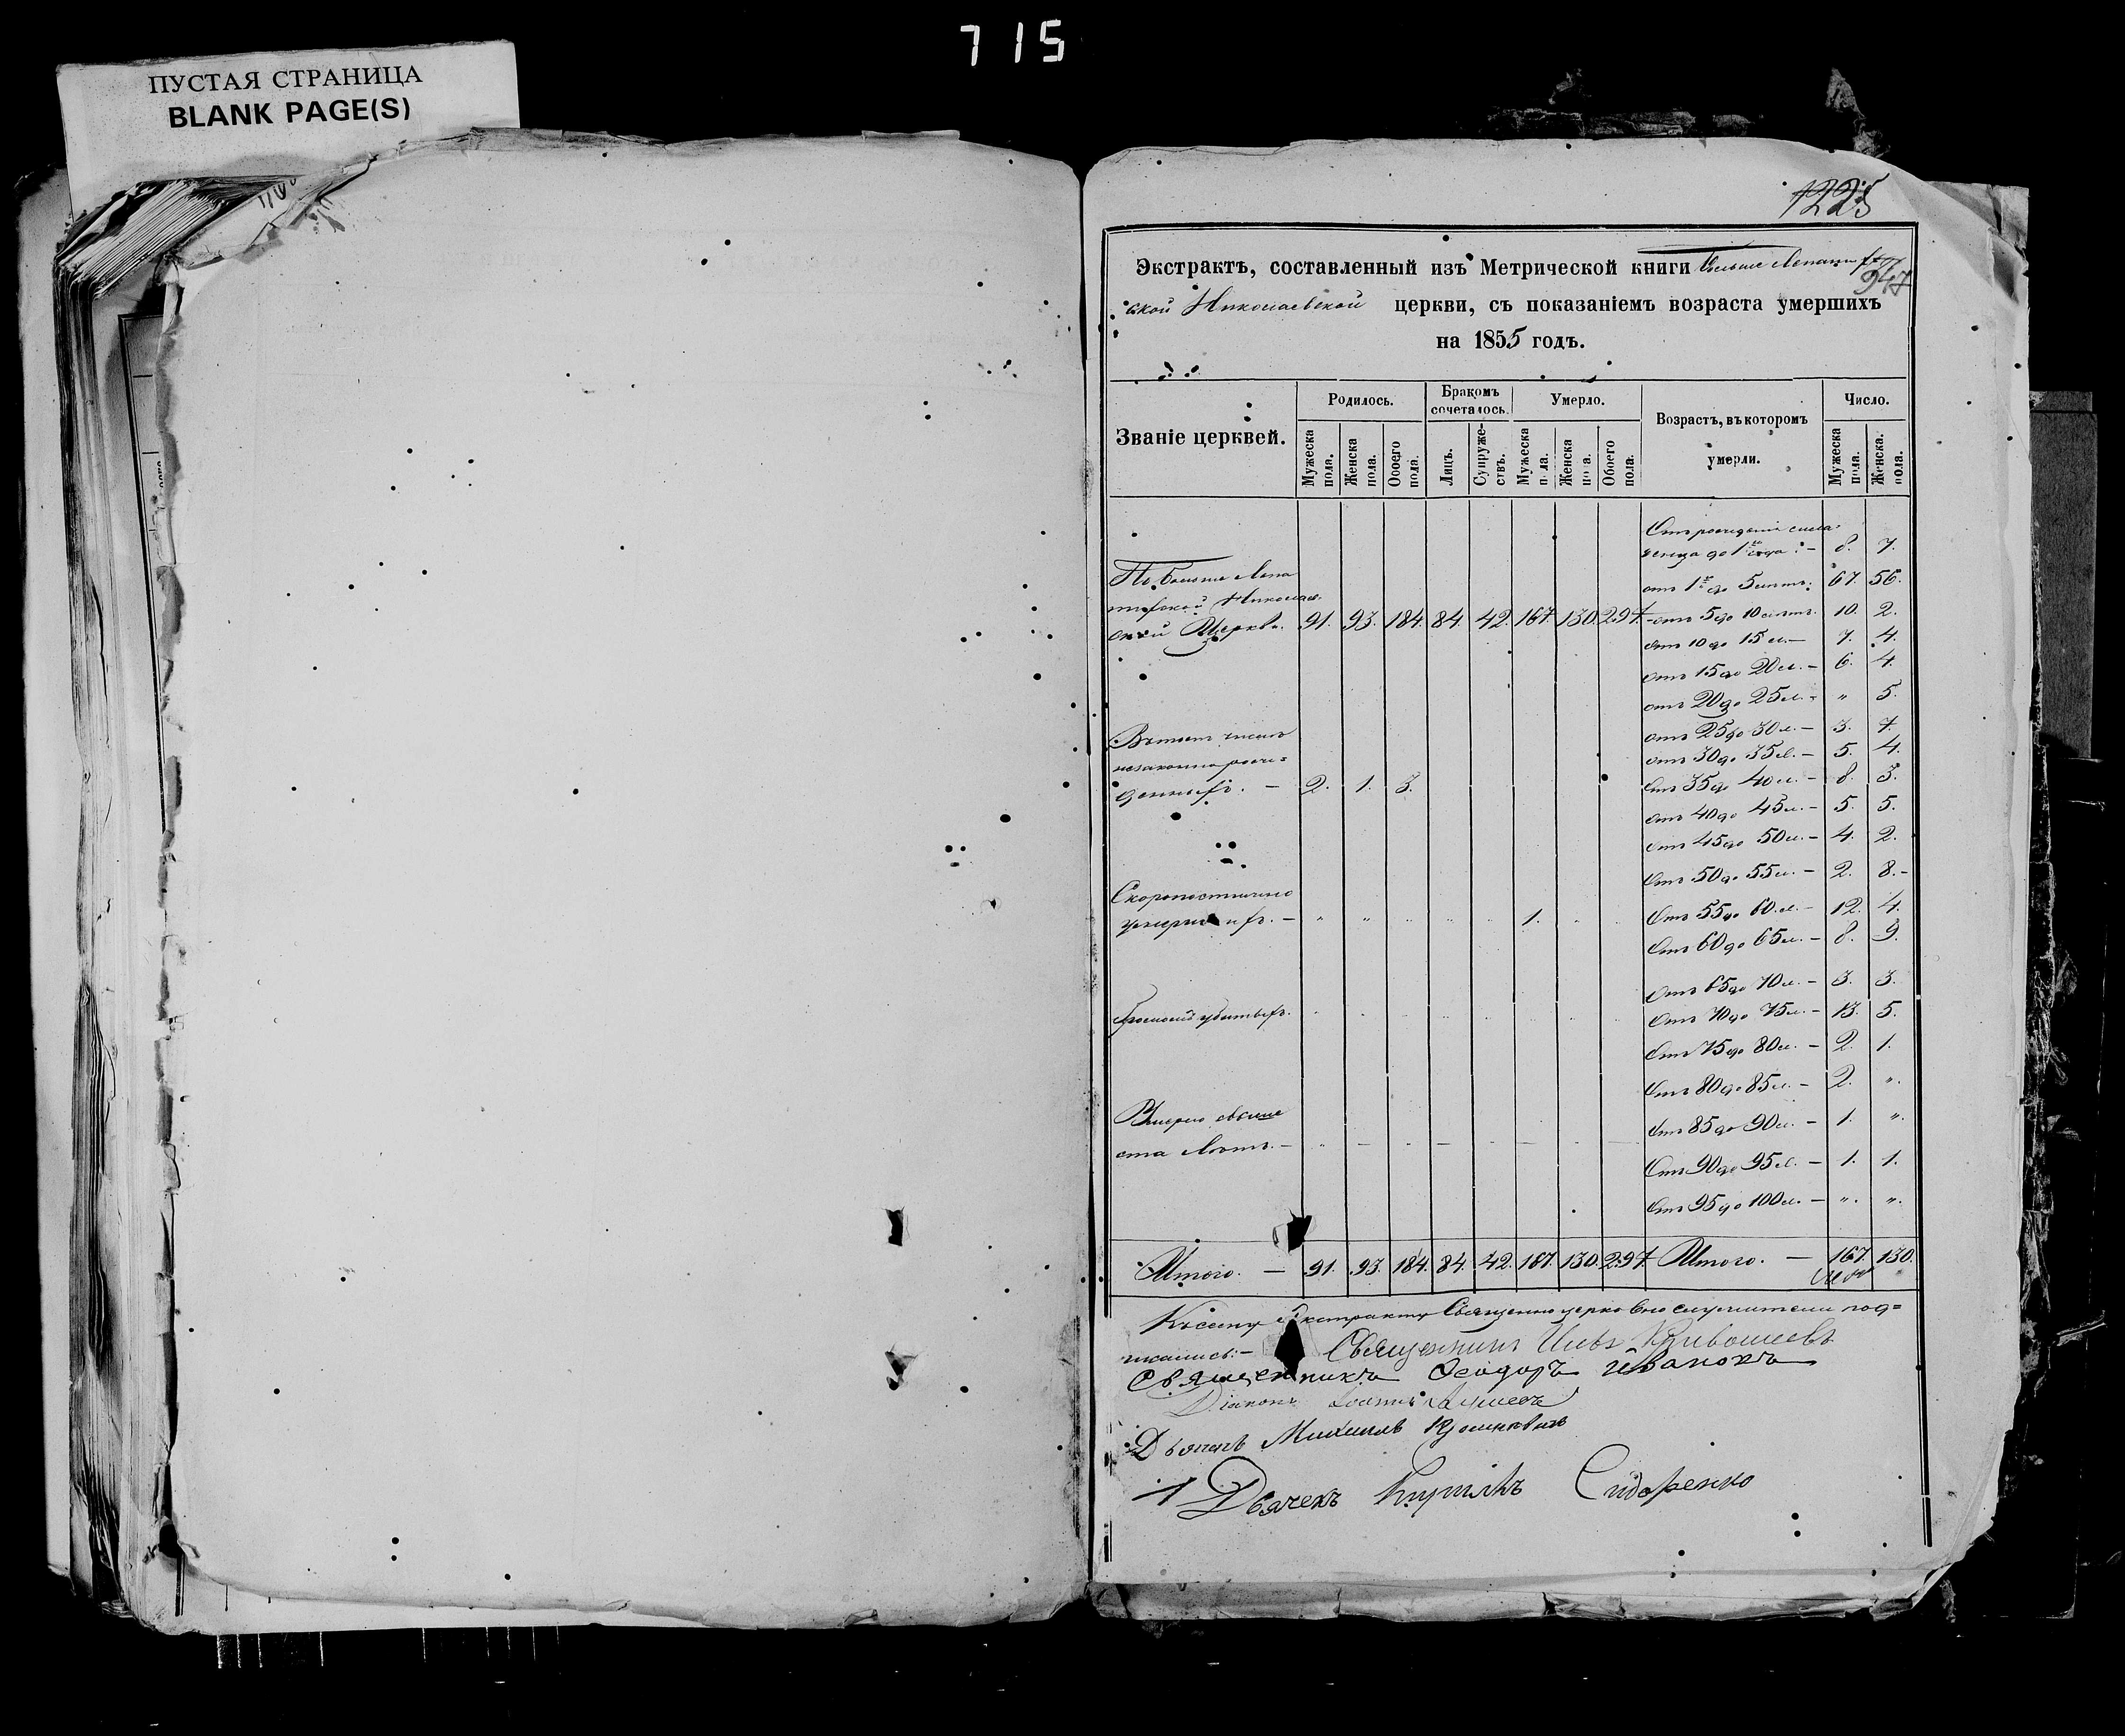 715
ПУСТАЯ СТРАНИЦА
BLANK PAGE(S)
1225
947
Экстрактъ, составленный изъ Метрической книги Больше
ской Николаевской церкви, съ показаніемъ возраста умершихъ
на 1855 годъ.
Званіе церквей.
Родилось.
Бракомъ сочеталось.
Умерло.
Возрастъ, въ которомъ умерли.
Число.
Мужеска пола.
Женска пола.
Обоего пола.
Лицъ.
Супружествъ.
Мужеска пола.
Женска пола.
Обоего пола.
Мужеска пола.
Женска пола.
Отъ рожденія мла-
денца до 1го года :- 8. 7.
По Больше
отъ 1го до 5 лѣтъ: 67. 56.
Николаев-
ской Церкви. 91. 93. 184. 84. 42. 167. 130. 297.
отъ 5 до 10 лѣтъ. 10. 2.
отъ 10 до 15 л.- 7. 4.
отъ 15 до 20 л.- 6. 4.
отъ 20 до 25 л.- " 5.
Въ томъ числѣ
отъ 25 до 30 л.- 3. 7.
незаконнорож-
отъ 30 до 35 л.- 5. 4.
денныхъ. - 2. 1. 3.
отъ 35 до 40 л.- 8. 3.
отъ 40 до 45 л.- 5. 5.
отъ 45 до 50 л.- 4. 2.
отъ 50 до 55 л.- 2. 8.-
Скоропостижно
умершихъ. - " " " " " 1. " "
отъ 55 до 60 л.- 12. 4.
отъ 60 до 65 л.- 8. 9.
отъ 65 до 70 л.- 3. 3.
Громомъ убитыхъ. " " " " " " " "
отъ 70 до 75 л.- 13. 5.
отъ 75 до 80 л.- 2. 1.
отъ 80 до 85 л.- 2. ".
Умерло свыше
отъ 85 до 90 л.- 1. ".
ста лѣтъ. - " - " - " - " -
отъ 90 до 95 л.- 1. 1.
отъ 95 до 100 л.- ". ".
Итого. - 91. 93. 184. 84. 42. 167. 130. 297. Итого. - 167 130.
Къ сему Экстракту Священно церковно служители под=
писались:- Священникъ Кривошеевъ
Священникъ Ѳеодоръ Ивановъ
Діаконъ Іоаннъ
Дьячекъ Михаилъ
Дьячекъ Кирилъ Сидоренко